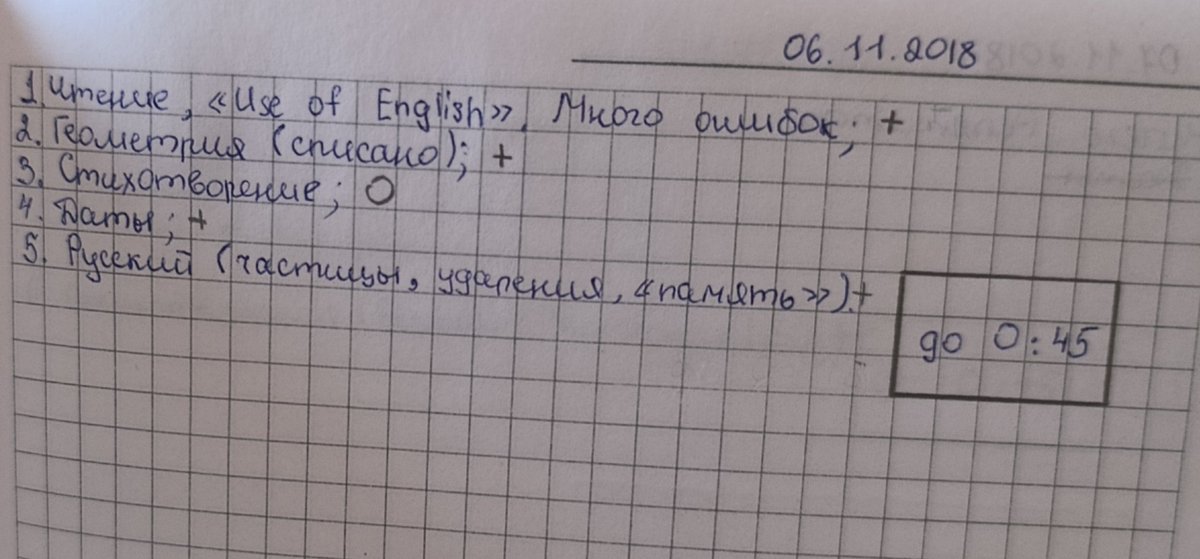 06.11.2018
1. Чтение, «Use of English». Много ошибок; +
2. Геометрия (списано); +
3. Стихотворение; О
4. Даты; +
5. Русский (частицы, ударения, «память»). +
до 0:45